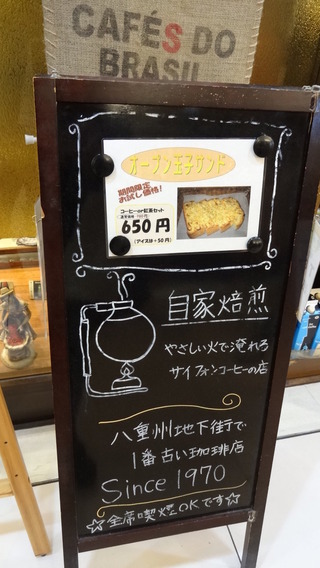 CAFÉS DO
BRASIL
オーブン玉子サンド
期間限定
お試し価格!
コーヒーor紅茶セット
650円
(アイスは+50円)
自家焙煎
やさしい火で淹れる
サイフォンコーヒーの店
八重州地下街で
1番古い珈琲店
Since 1970
☆全席喫煙OKです☆